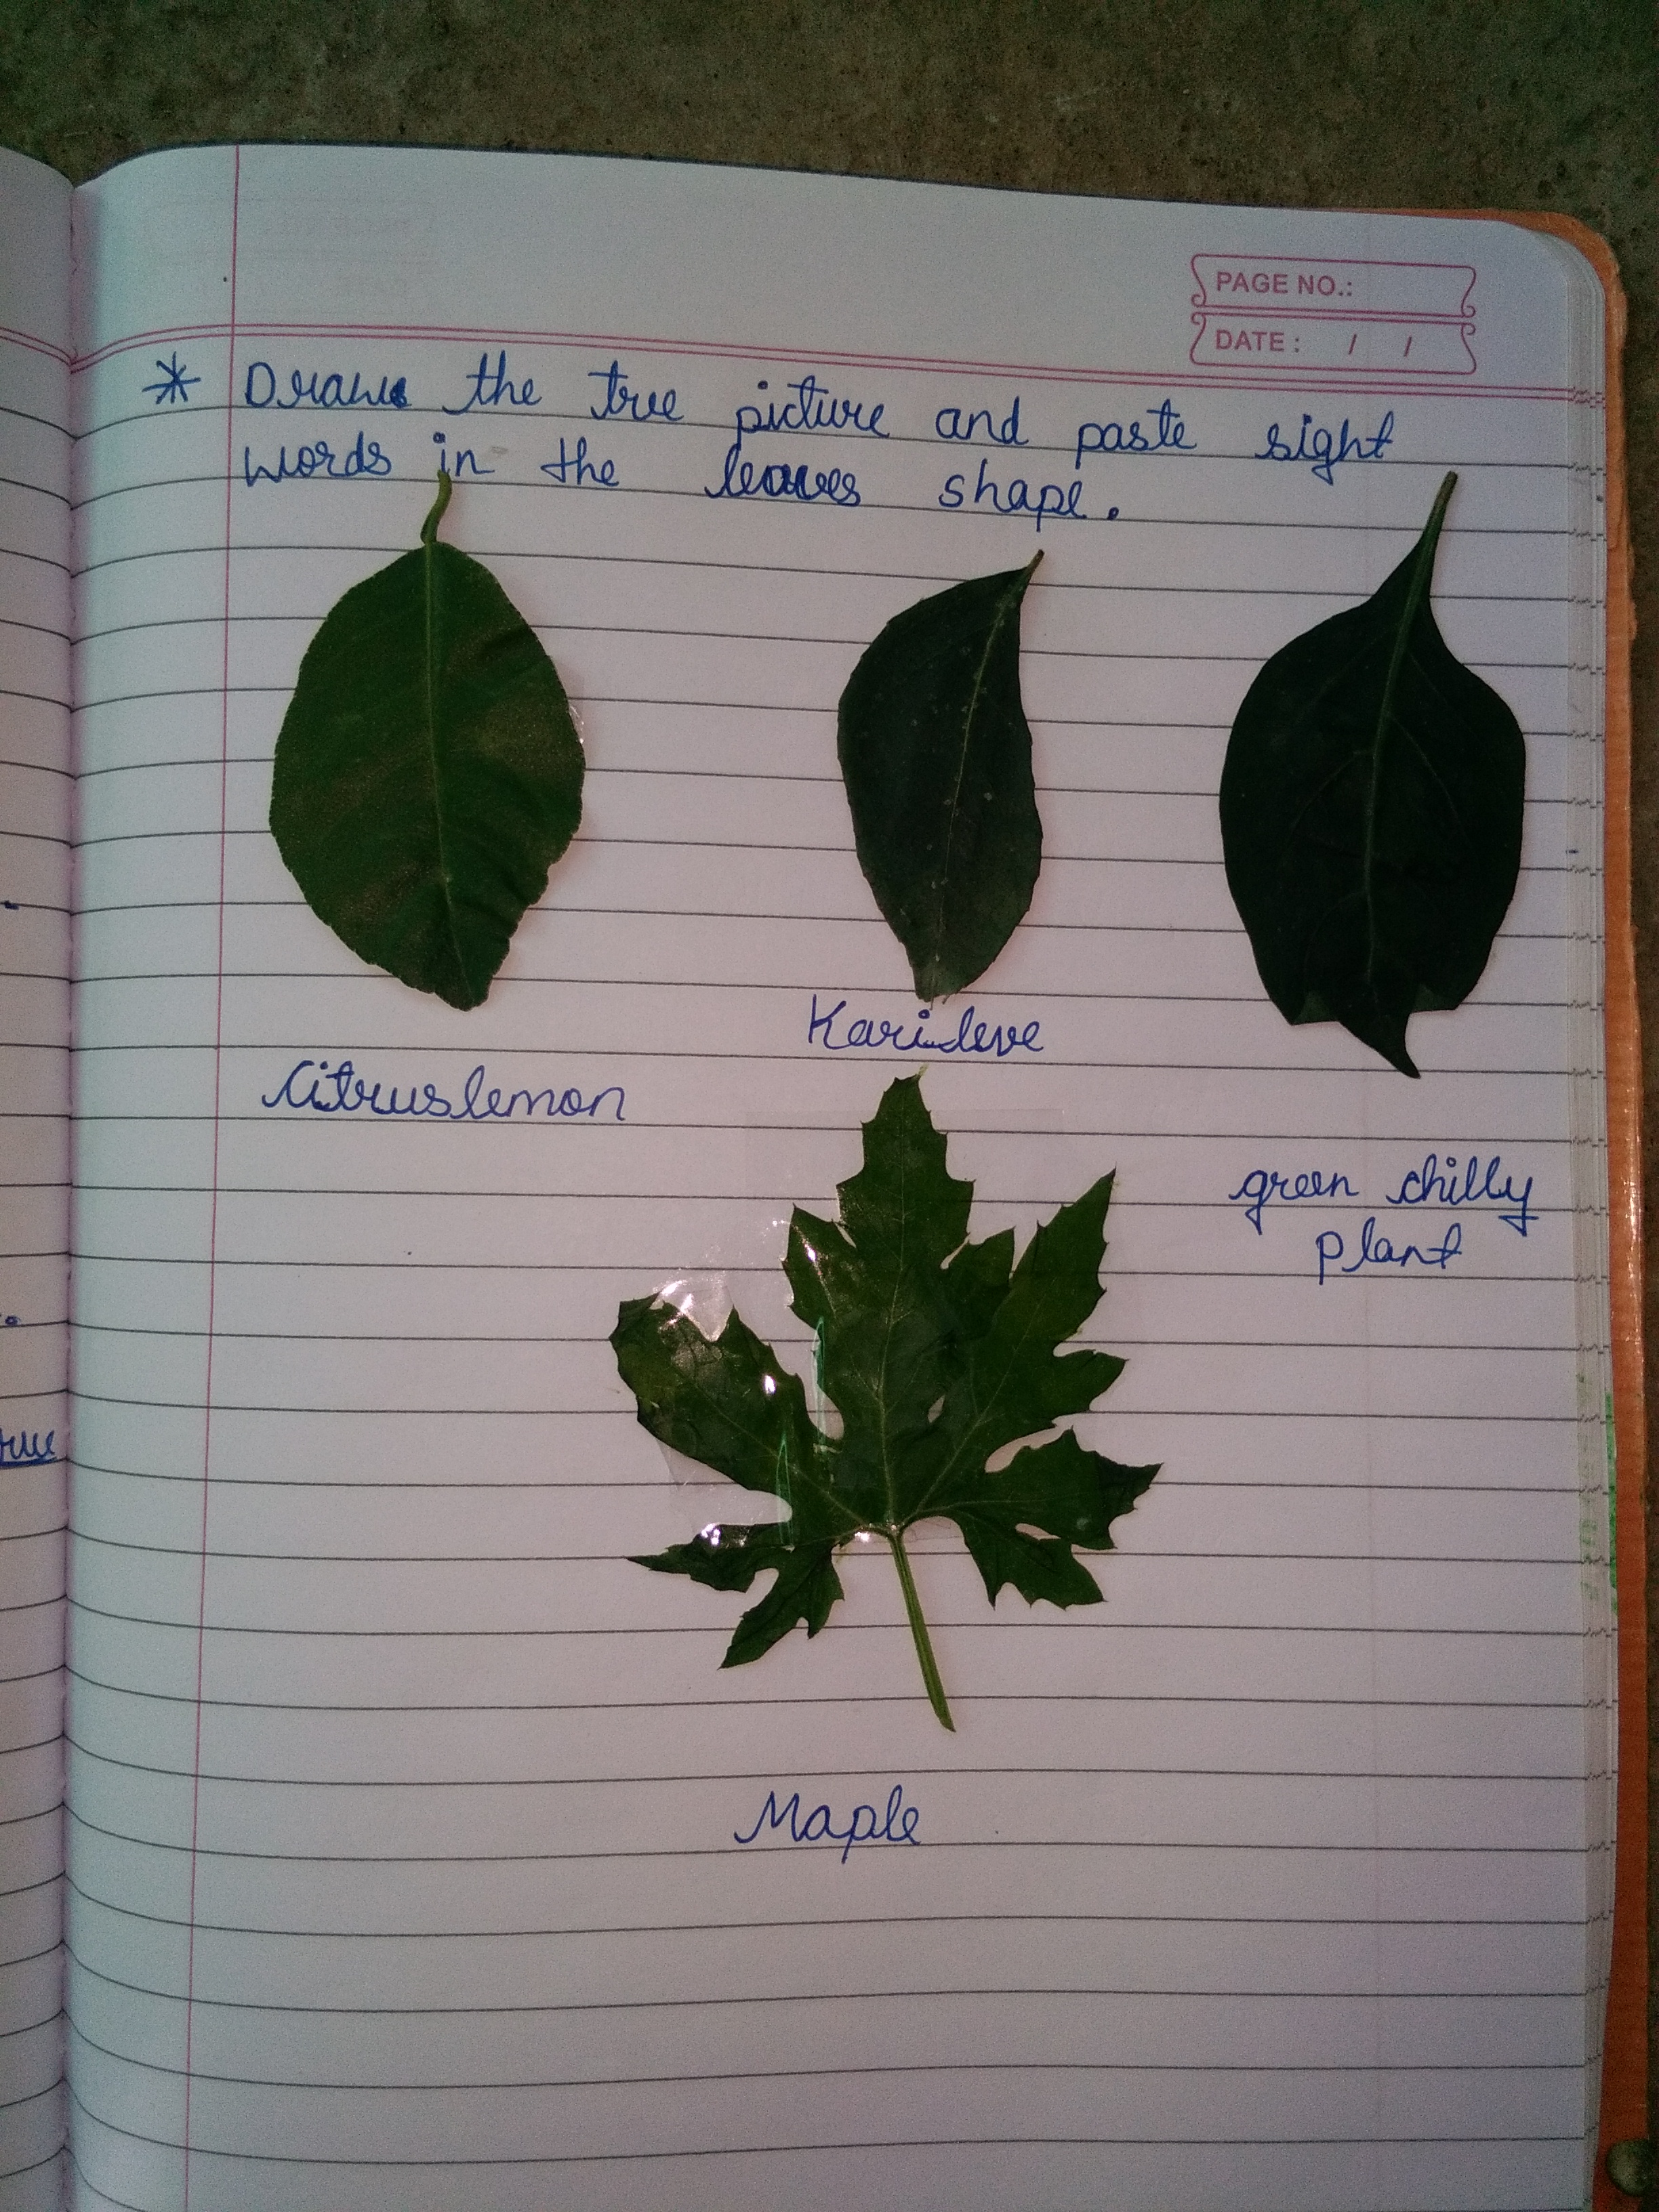 PAGE NO.:
DATE : / /
* Draw the tree picture and paste sight
words in the leaves shape.
Karileve
Citruslemon
green chilly
plant
Maple